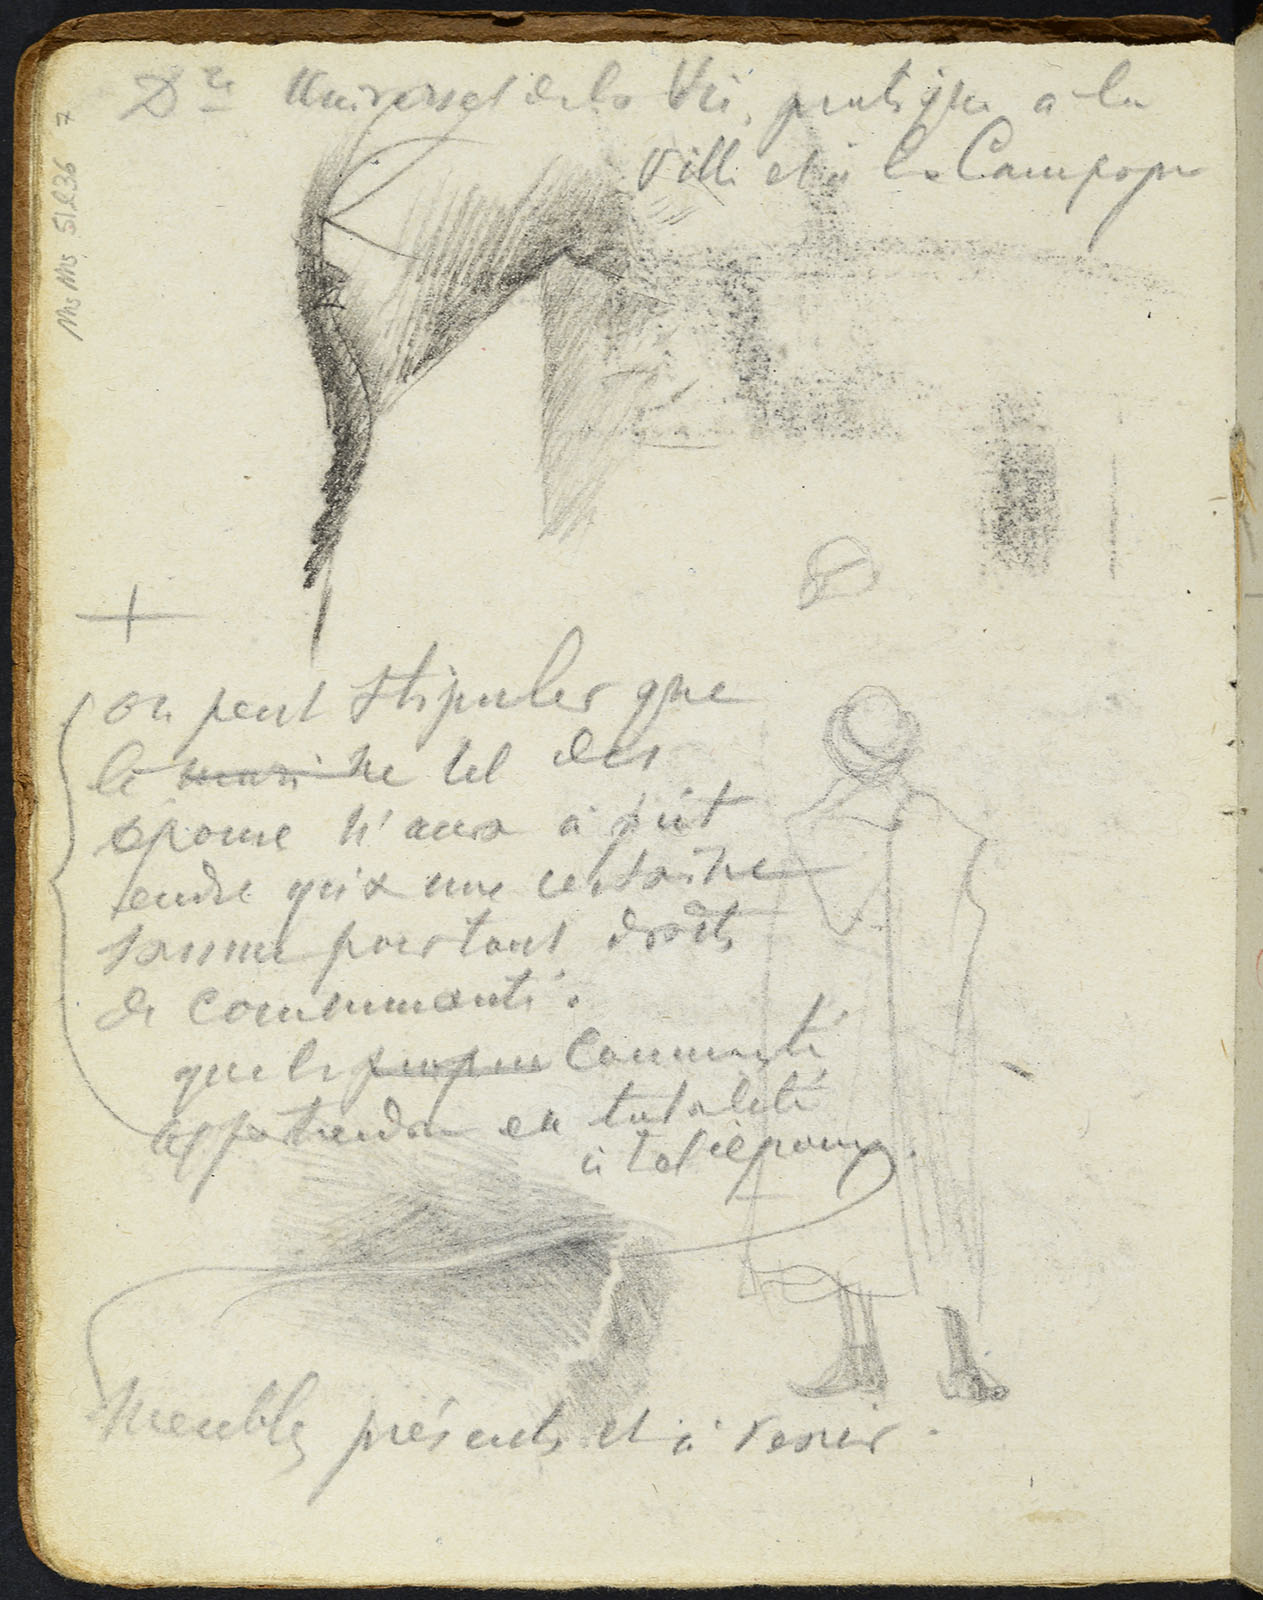 Dre Universel de la Vie pratique a la
Ville et à la Campagne
Ms Ms 51236 7
on peut stipuler que
le mari ne tel des
époux n'aura à prét
endre qu'à une certaine
somme pour tout droits
de communauté.
que la propri Communté
appartiendra en totalité
à tel époux.
Meubles présents et à venir.